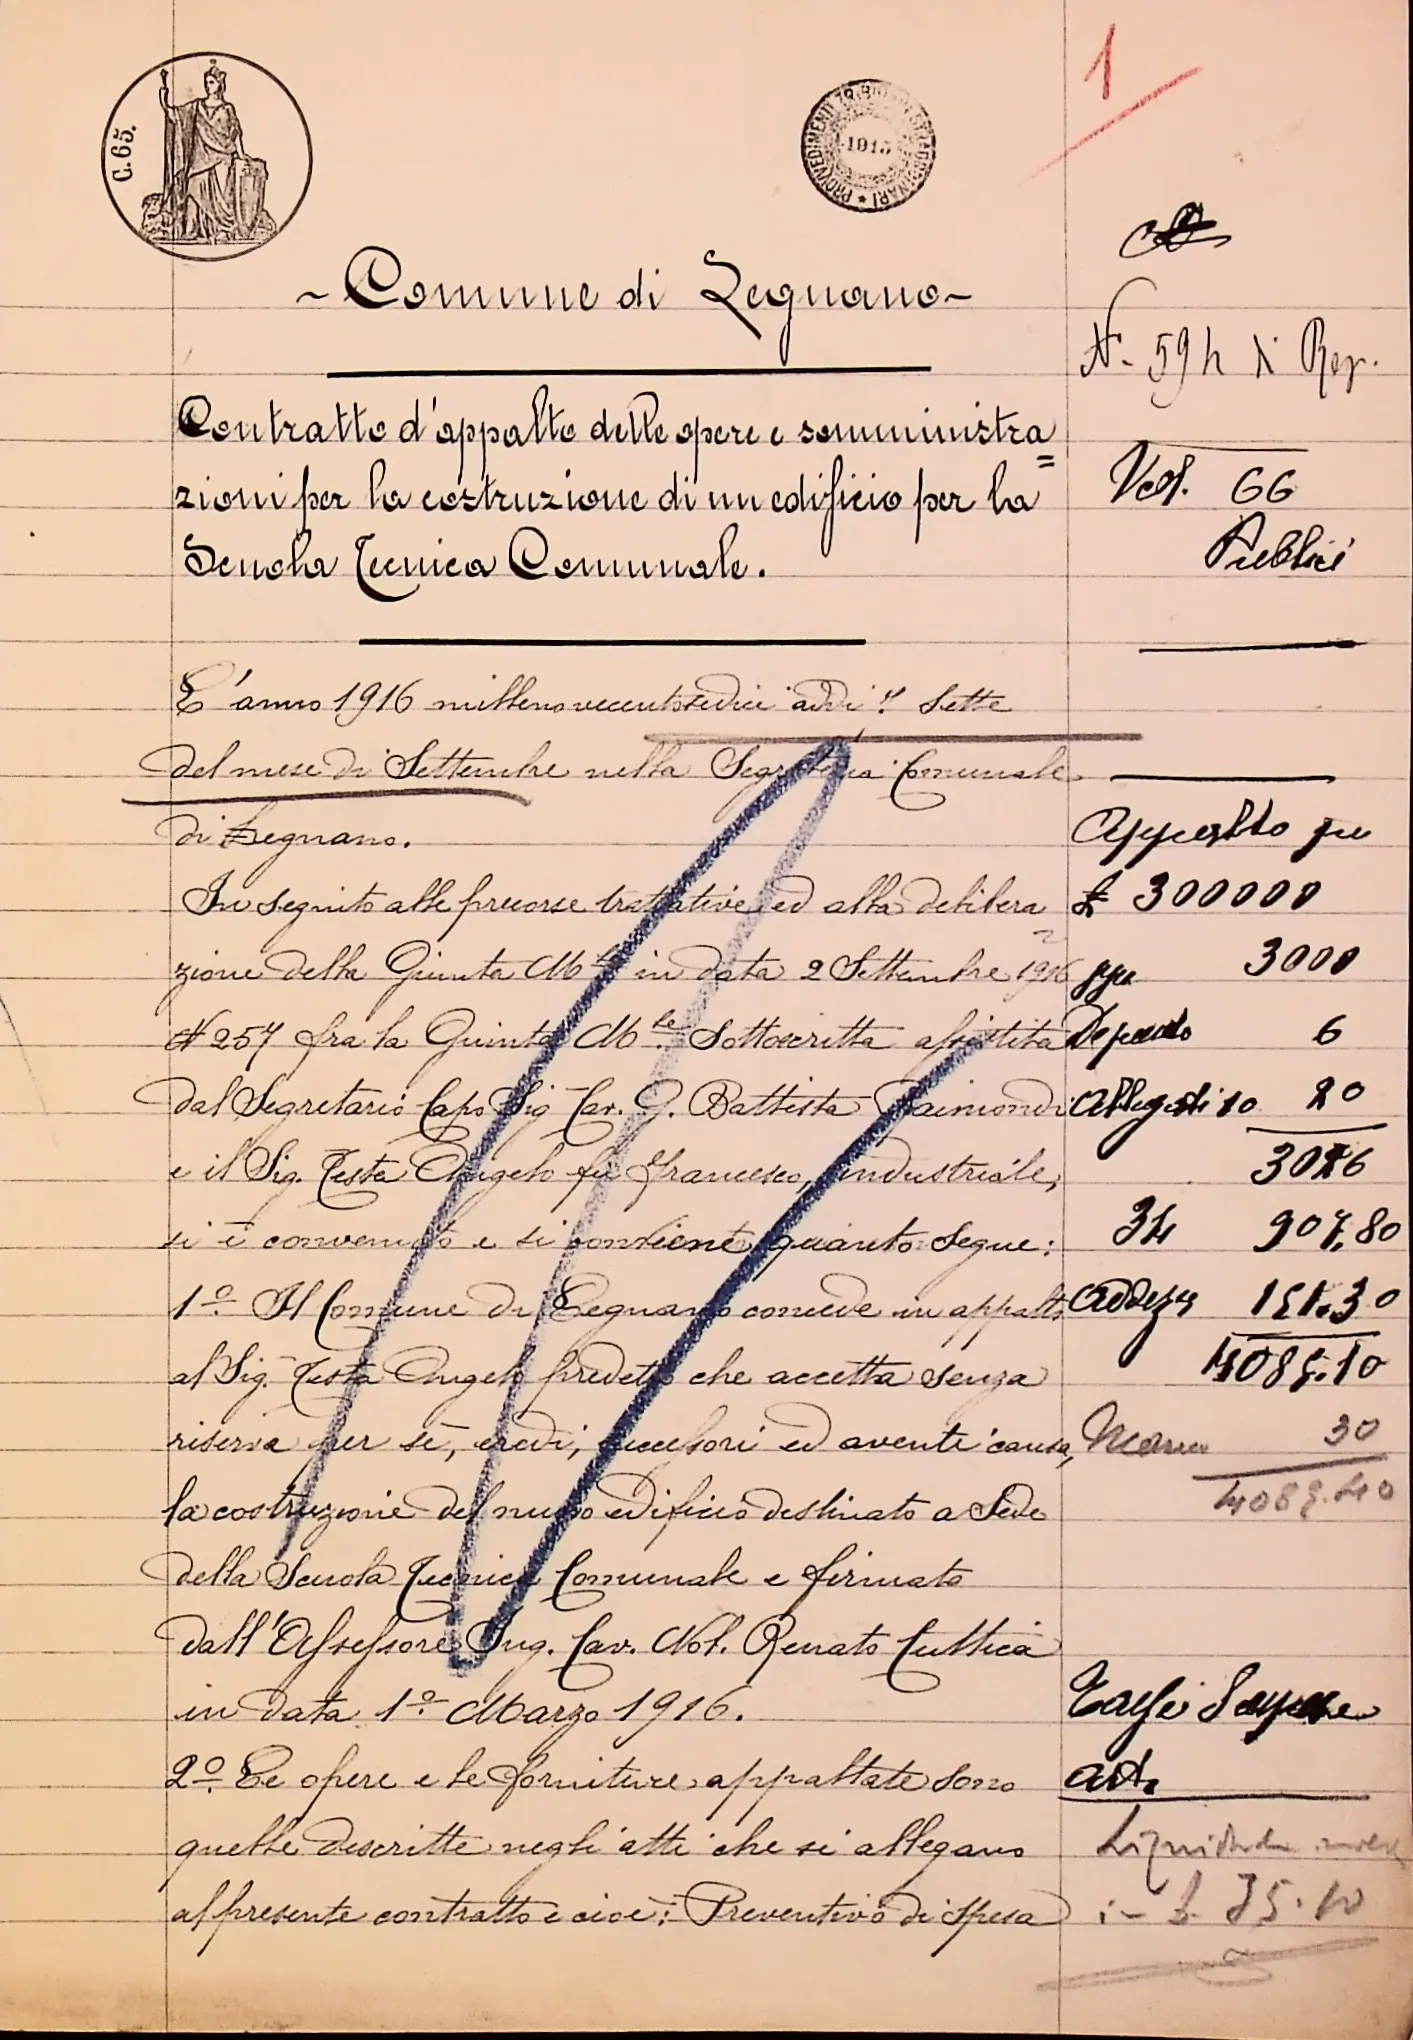 1
C. 65.
PROVVEDIMENTI TRIBUTARI STRAORDINARI
1915
- Comune di Legnano -
N. 594 di Rep.
Contratto d'appalto delle opere e somministra=
zioni per la costruzione di un edificio per la
Scuola Tecnica Comunale.
Vol. 66
Pubblici
L'anno 1916 millenovecentosedici addì 7 Sette
del mese di Settembre nella Segreteria Comunale
di Legnano.
In seguito alle precorse trattative ed alla delibera=
zione della Giunta M.le in data 2 Settembre 1916
N 257 fra la Giunta M.le Sottoscritta assistita
dal Segretario Capo Sig. Cav. G. Battista Raimondi
e il Sig. Testa Angelo fu Francesco, industriale,
si è convenuto e si conviene quanto segue:
1º. Il Comune di Legnano concede in appalto
al Sig. Testa Angelo predetto che accetta senza
riserva per sè, eredi, successori ed aventi causa,
la costruzione del nuovo edificio destinato a Sede
della Scuola Tecnica Comunale e firmato
dall'Assessore Ing. Cav. Nob. Renato Cuttica
in data 1º. Marzo 1916.
2º. Le opere e le forniture appaltate sono
quelle descritte negli atti che si allegano
al presente contratto e cioè: Preventivo di spesa
Appalto per
£ 300000
3000
6
Allegati 10 20
3026
34 907.80
Addiz 151.30
4085.10
30
4085.40